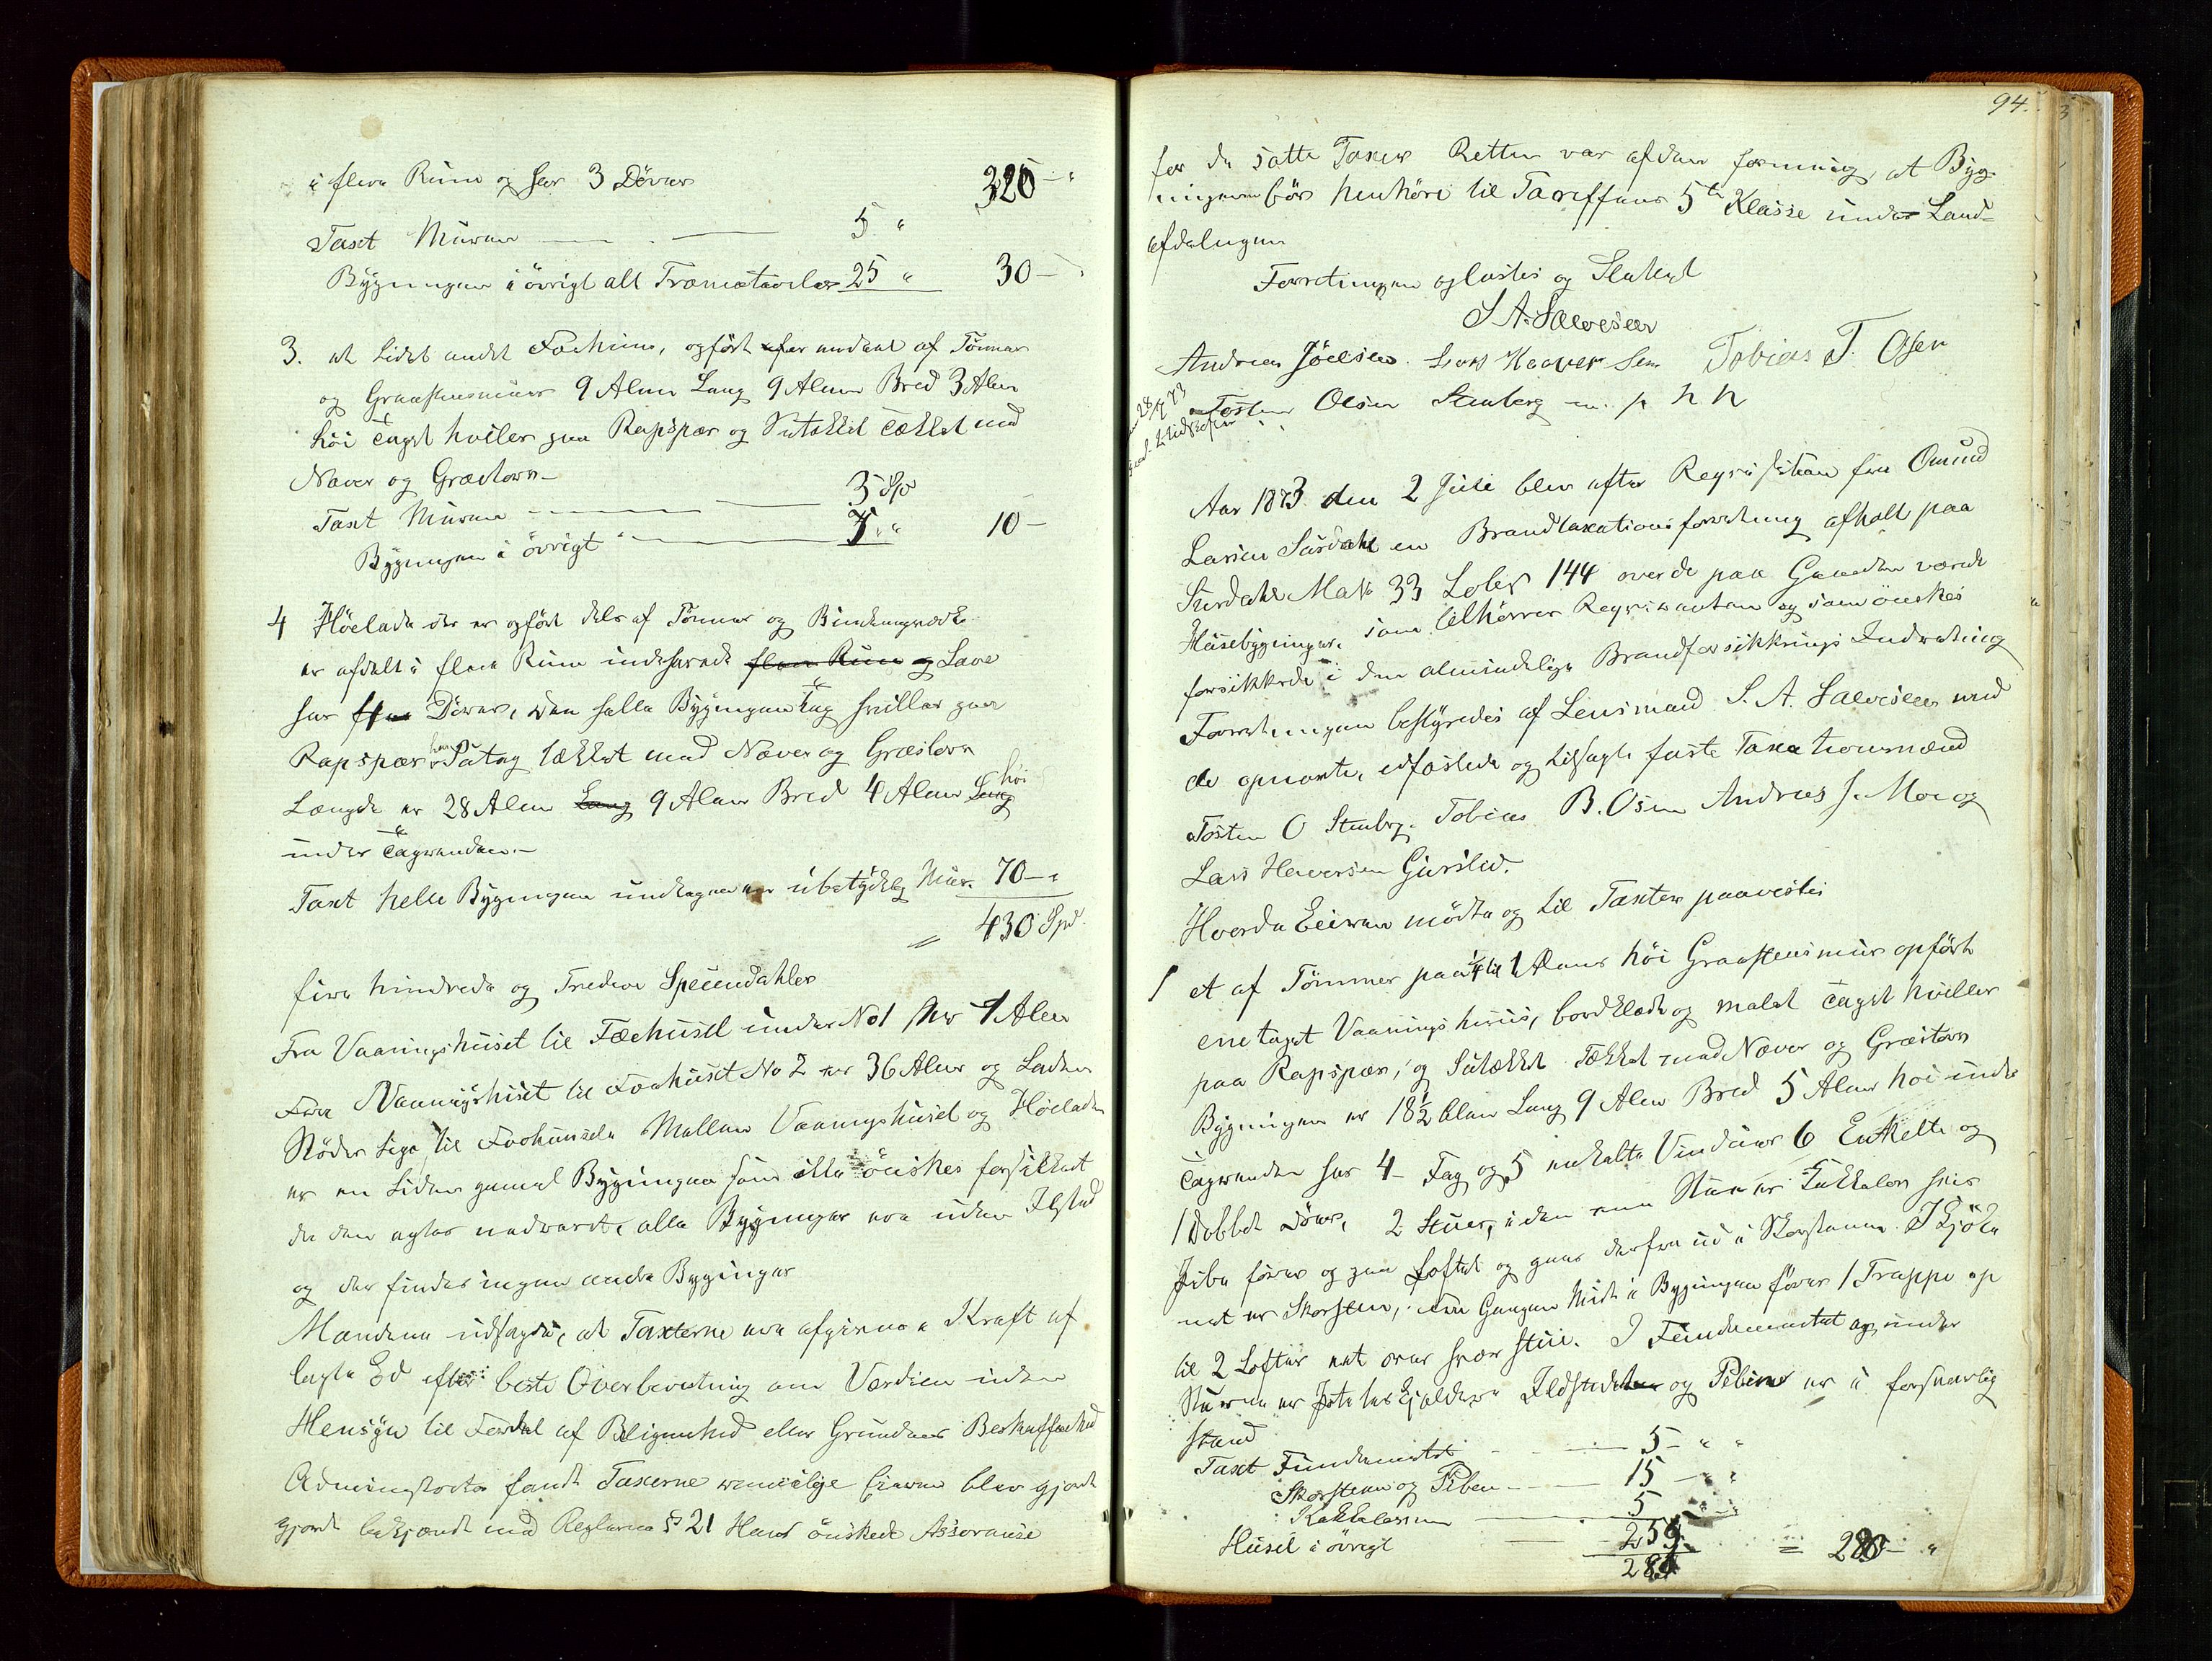 i flere Rum og har 3 Dörer 320 — "
Taxt Muren — 5 "
Bygningen i övrigt alt Træmaterialer 25 " 30 —
3. et Lidet andet Foehuus, opfört for endeel af Tömmer
og Graasteensmuur 9 Alen Lang 9 Alen Bred 3 Alen
höi Taget hviler paa Rapspær og Sutækket Tækket med
Næver og Græstorv —
Taxt Muren — 3 Sp
Bygningen i övrigt — 7 " 10 —
4 Höelade der er opfört dels af Tömmer og Bindingsværk
er afdelt i flere Rum indehavende flere Rum og Lave
har flere Dörer, den hele Bygningen Tag hviller paa
Rapspær har Sutag tækket med Næver og Græstorv
Længde er 28 Alen Lang 9 Alen Bred 4 Alen Lang höi
under Tagranden. —
Taxt hele Bygningen undtagen en ubetydelig Muur. 70 — "
= 430 Spd.
fire hundrede og Tredeve Speciedahler
Fra Vaaningshuset til Fæehuset under No 1 er 7 Alen
Fra Vaaningshuset til Foehuset No 2 er 36 Alen og Laden
Stöder lige til Foehuusede Mellem Vaaningshuset og Höeladen
er en Liden gamel Bygningen som ikke önskes forsikkret
da den agtes nedrevet, alle Bygninger ere uden Ildsted
og der findes ingen andre Bygninger
Mændene udsagde, at Taxterne ere afgivne i Kraft af
lagte Ed efter beste Overbevisning om Værdien uden
Hensyn til Fordel af Beligenhed eller Grundens Beskaffenhed
Administrator fandt Taxterne Eieren blev gjort
gjort bekjendt med Reglerne § 21 Hand önskede Assuranse
94.
for de satte Taxter Retten var af den formening, at Byg-
ningerne bör henhöre til Tariffens 5te Klasse under Land-
afdelingen
Forretningen oplæstes og Sluttet
S. A. Salvesen
Andreas Joelsen. Lars Haaver Sen Tobias T. Osen
Tosten Olsen Stenberg m. p h. h
28/7 73
Aar 1873 den 2 Juli blev efter Reqvisition fra Omund
Larsen Surdahl en Brandtaxationsforretning afholt paa
Surdahl Matr 33 Lobr 144 over de paa Gaarden værende
Husebygninger. som tilhörer Reqvirenten og som önskes
forsikkrede i den almindelige Brandforsikkrings Indretning
Forretningen bestyredes af Lensmand S. A. Salvesen med
de opnævnte, edfæstede og tilsagte faste Taxationsmænd
Tosten O Stenberg. Tobias B. Osen Andreas J. Moe og
Lars Haversen Gurslid.
Hvorda Eieren mödte og til Taxten paavistes
1 et af Tömmer paa 1/4 til 1 Alens höi Graasteensmuur opfört
enetaget Vaaningshuus, bordklædt og malet Taget hviller
paa Rapspær, og Sutækket Tækket med Næver og Græstorv
Bygningen er 18 1/2 Alen Lang 9 Alen Bred 5 Alen höi under
Tagranden har 4 Fag og 5 enkelte Vinduer 6 Enkelte og
1 Dobbelt Dörer, 2 Stuer, i den ene Stue er Kakkelovn hvis
Pibe förer og paa Loftet og gaar derfra ud i Skorstenen. I Kjök
net er Skorsten, fra Gangen Midt i Bygningen förer 1 Trappe op
til 2 Lofter eet over hver Stue. I Fundamentet og under
Stuerne er Potetes Kjelder Ildstederne og Piberne er i forsvarlig
Stand
Taxt Fundamentet — 5 — " "
Skorsten og Piben — 15 — " "
Kakkelovnen — 5 " "
Huset i övrigt — 255
280 = 280 — "